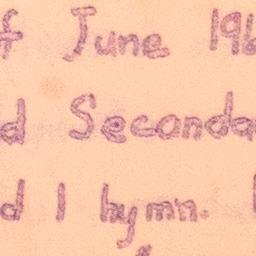 f June 196
d Seconda
d 1 hymn.